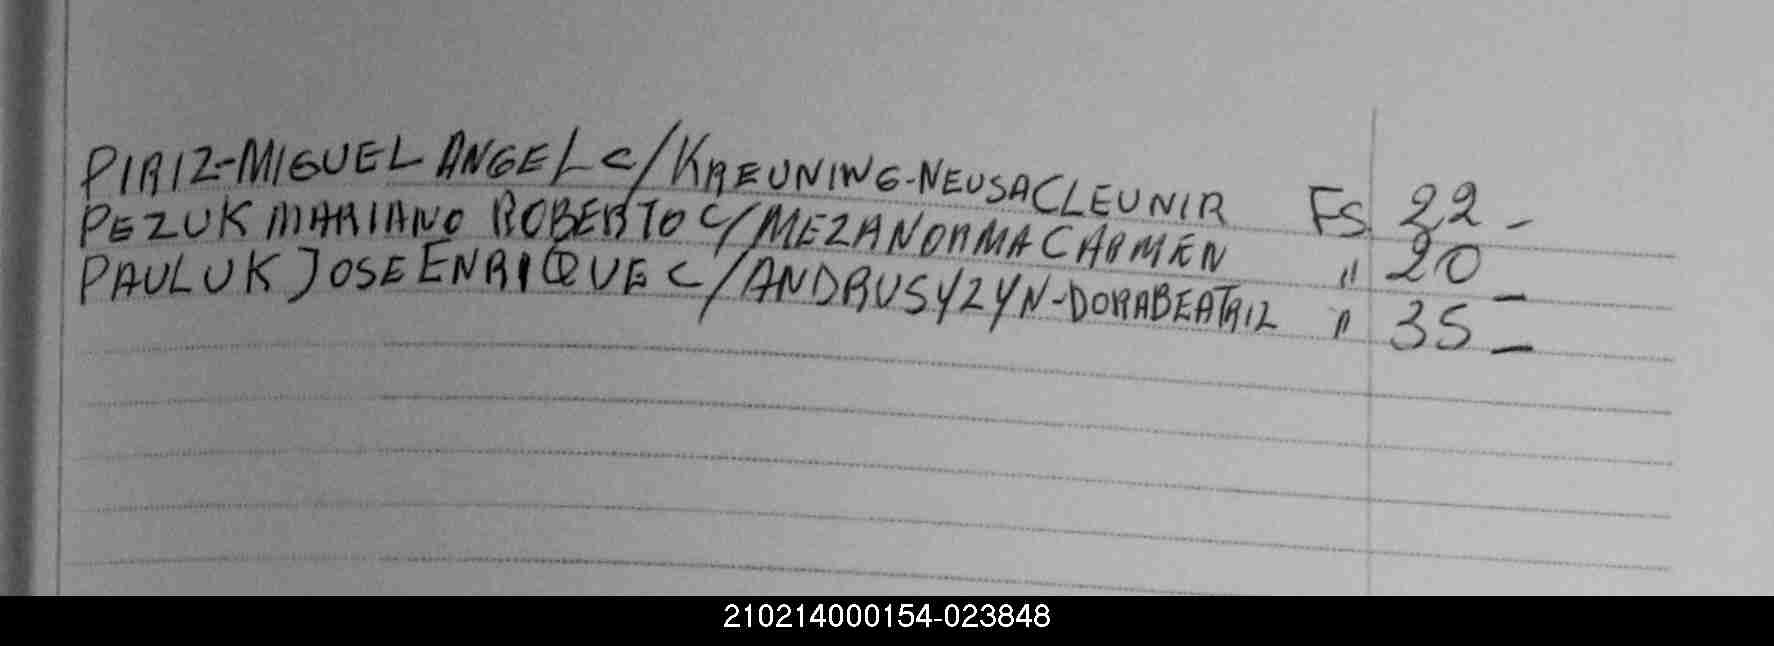 PIRIZ-MIGUEL ANGEL C/KREUNING-NEUSACLEUNIR Fs 22-
PEZUK MARIANO ROBERTO C/MEZA NORMA CARMEN " 20-
PAULUK JOSE ENRIQUE C/ANDRUSYZYN-DORA BEATRIZ " 35-
210214000154-023848